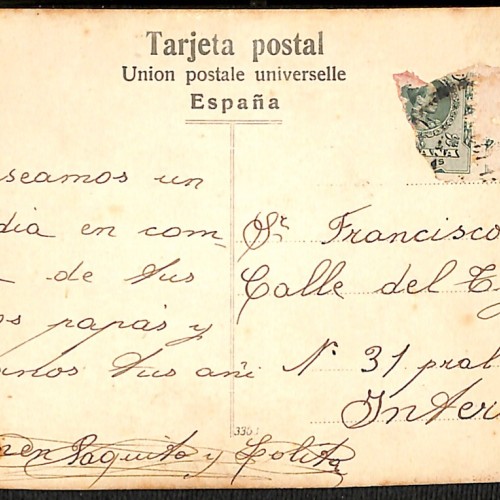 Tarjeta postal
Union postale universelle
España
seamos un
dia en com-
de tus
os papás y
anos tus ami
Paquito y Lolita
Sr. Francisco
Calle del
Nº 31 pral
Inter
3303